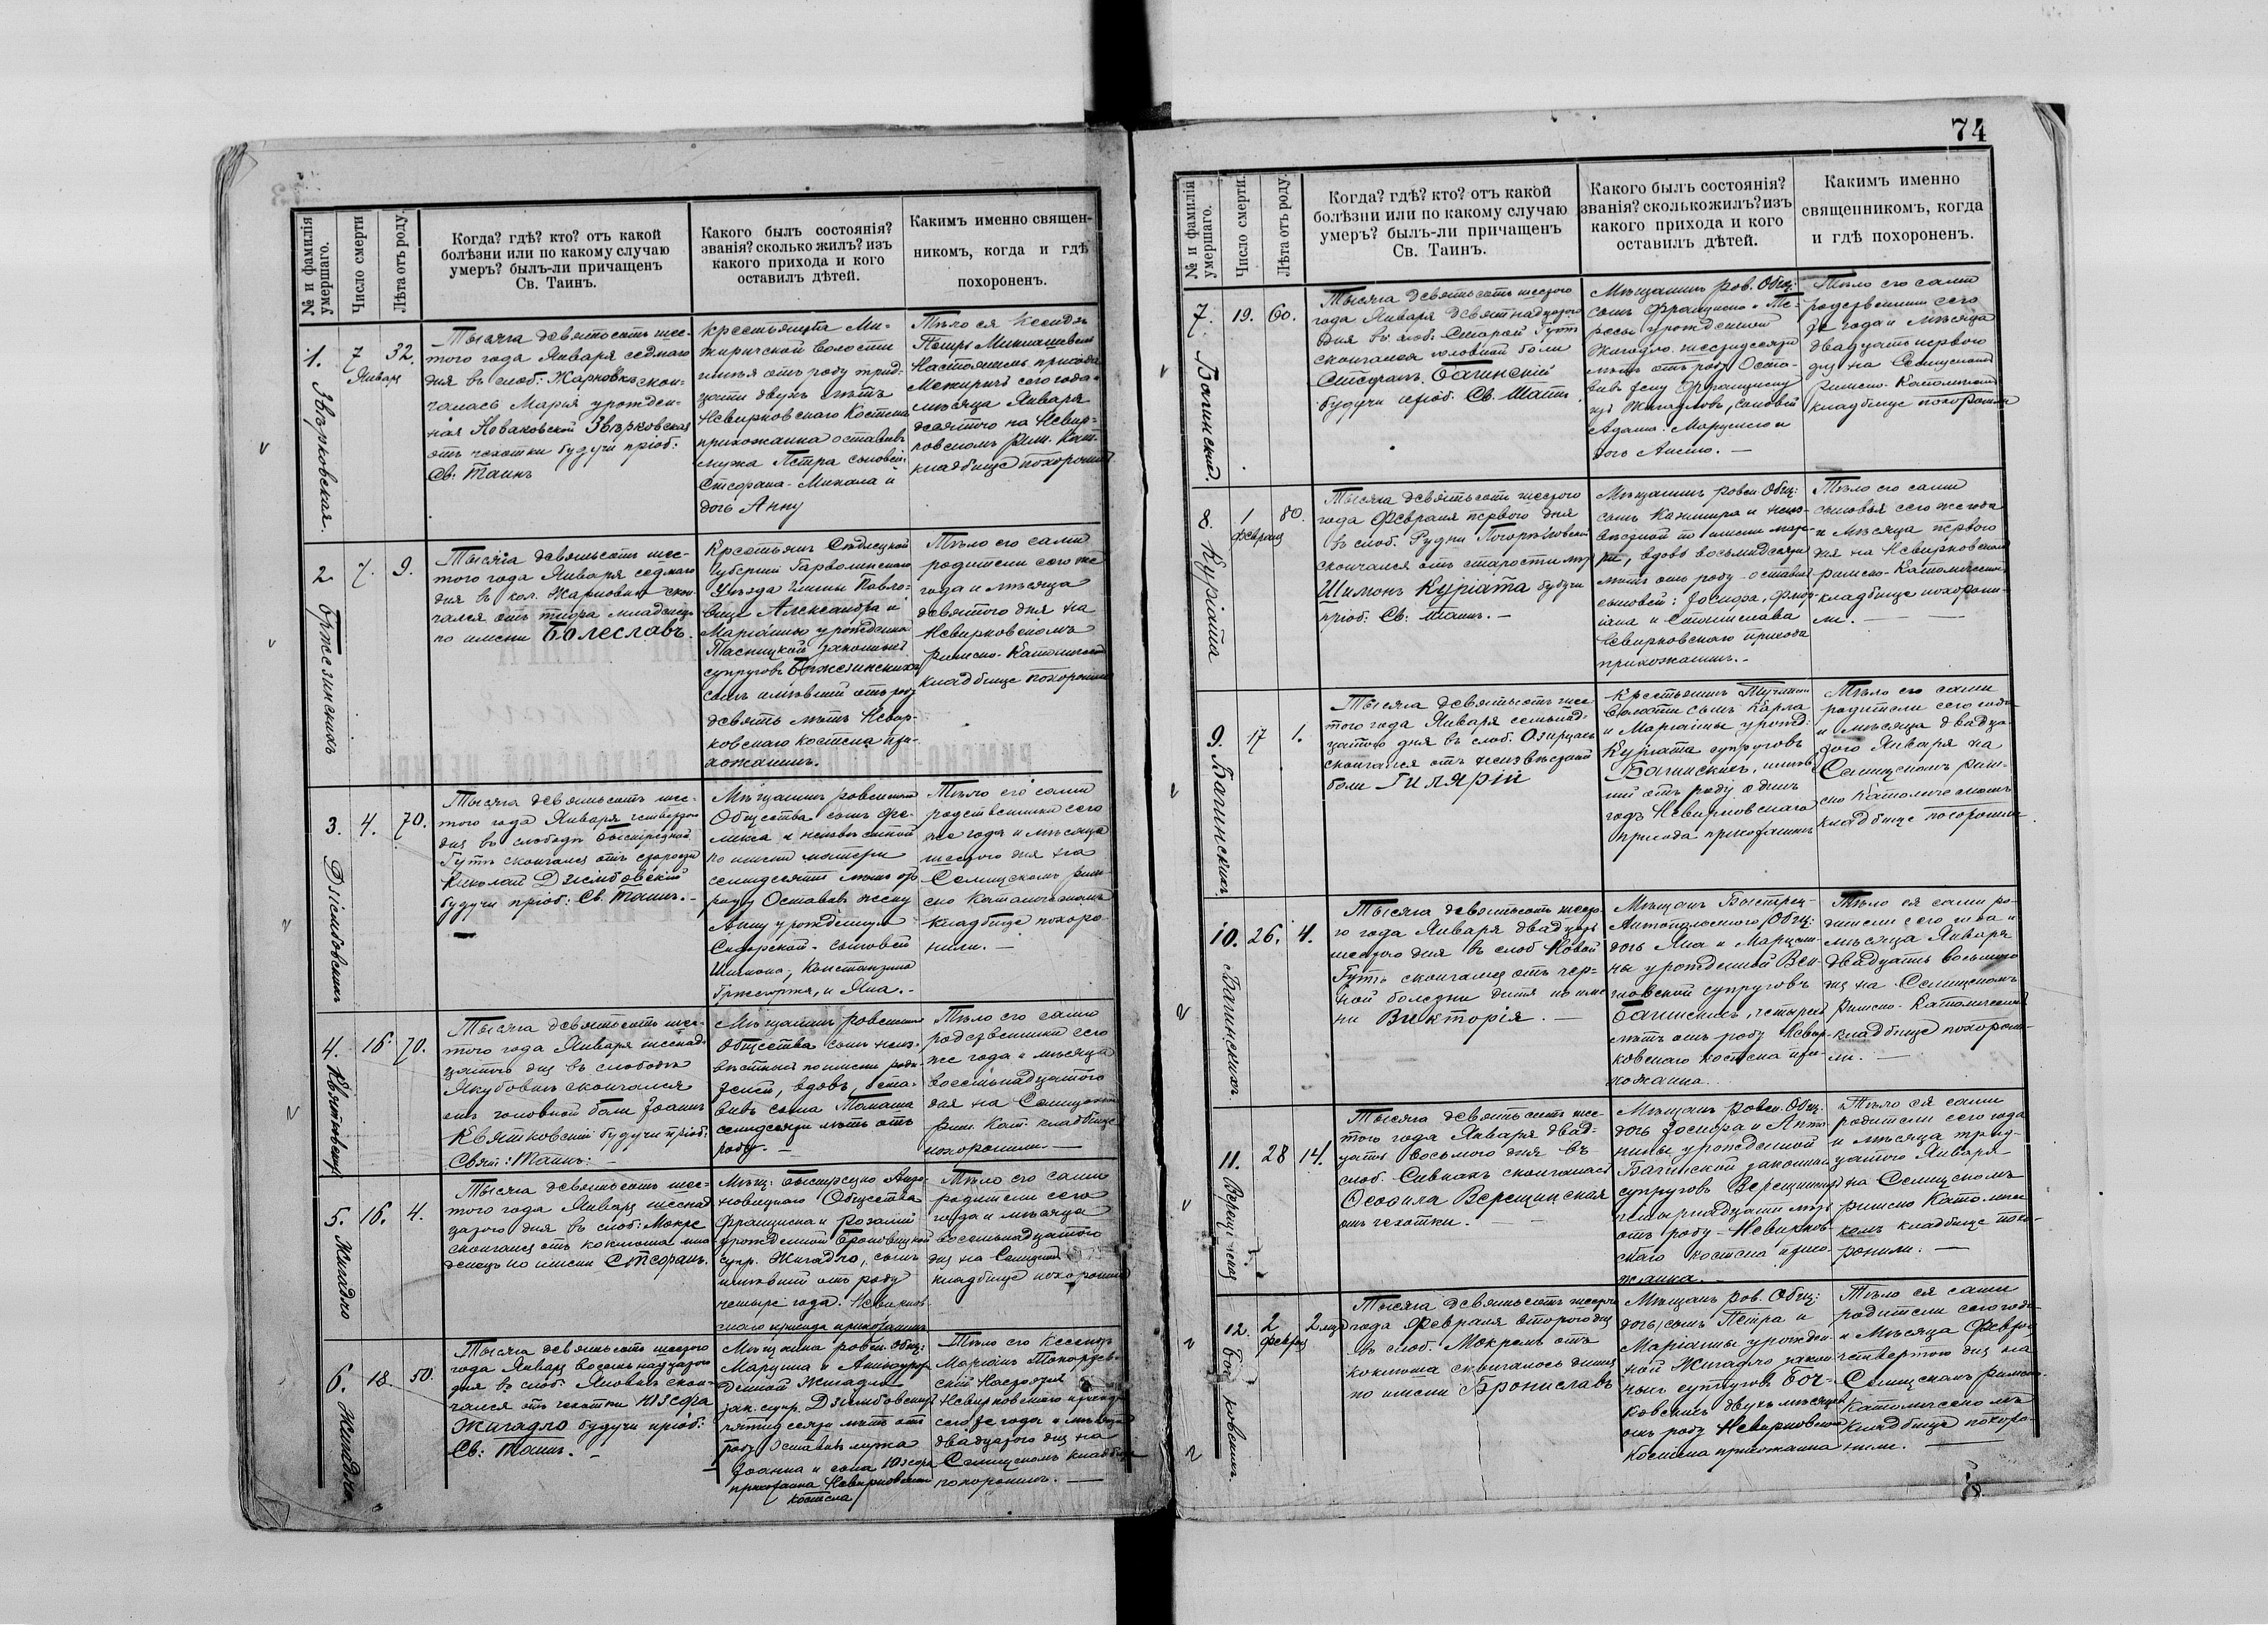 74
№ и фамилія умершаго.
Число смерти
Лѣта отъ роду.
Когда? гдѣ? кто? отъ какой
болѣзни или по какому случаю
умеръ? былъ-ли причащенъ
Св. Таинъ.
Какого былъ состоянія?
званія? сколько жилъ? изъ
какого прихода и кого
оставилъ дѣтей.
Какимъ именно священ-
никомъ, когда и гдѣ
похороненъ.
1. Звѣрковская.
7
Января
32.
Тысяча девятьсотъ шес-
того года Января седмаго
дня въ слоб: Жарновка скон-
чалась Марія урожден-
ная Новаковской Звѣрковская
отъ чахотки будучи пріоб:
Св. Таинъ
крестьянка Ми-
жиричской волости
отъ роду трид-
цати двухъ лѣтъ
Невирковскаго Костела
прихожанка оставивъ
мужа Петра сыновей:
Стефана - Михала и
дочь Анну
Тѣло ея Ксендзъ
Петръ
Настоятель прихода
Межиричъ сего года и
мѣсяца Января
девятого на Невир-
ковскомъ рим. кат.
кладбище похоронилъ
2 Бржезинскихъ
7.
9.
Тысяча девятьсотъ шес-
того года Января седмаго
дня въ кол. Жарновка скон-
чался отъ тифа младенецъ
по имени Болеславъ.
Крестьянъ Сѣдлецкой
Губерніи Гарволинскаго
Уѣзда Гмины Павло-
вице Александра и
Маріанны урожденной
законныхъ
супруговъ Бржезинскихъ
сынъ имѣвшій отъ роду
девять лѣтъ Невир-
ковскаго костела при-
хожанинъ.
Тѣло его сами
родители сего же
года и мѣсяца
девятого дня на
Невирковскомъ
римско-Католическомъ
кладбище похоронили
3. Дзіембовскихъ
4.
70.
Тысяча девятьсотъ шес-
того года Января четвертого
дня въ слободѣ
Гутѣ скончался отъ старости
Николай Дзіембовскій
будучи пріоб: Св. Таинъ. -
Мѣщанинъ ровенскаго
Общества сынъ Фе-
ликса и неизвѣстной
по имени матери
семидесяти лѣтъ отъ
роду Оставивъ жену
Анну урожденную
Сидорской - сыновей
Шимона, Константина
Гржегоржа, и Яна. -
Тѣло его сами
родственники сего
же года и мѣсяца
шестого дня на
Селищскомъ рим-
ско Католическомъ
кладбище похоро-
нили. -
4. Квятковскій
16
70.
Тысяча девятьсотъ шес-
того года Января шеснад-
цатого дня въ слободѣ
Якубовкѣ скончался
отъ головной боли Іоаннъ
Квятковскій будучи пріоб:
Свят: Таинъ: -
Мѣщанинъ ровенскаго
Общества сынъ неиз-
вѣстныхъ по имени роди-
телей, вдовъ, оста-
вивъ сына Томаша
семидесяти лѣтъ отъ
роду. -
Тѣло его сами
родственники сего
же года и мѣсяца
восемьнадцатого
дня на Селищскомъ
рим. Кат. кладбище
похоронили. -
5. Жигадло
16.
4.
Тысяча девятьсотъ шес-
того года Января шеснад-
цатого дня въ слоб: Мокре
скончался отъ коклюша мла-
денецъ по имени Стефанъ.
Мѣщ: Быстрецко Анто-
новецкаго Общества
Францишка и Розаліи
урожденной
супр. Жигадло, сынъ
имѣвшій отъ роду
четыре года. Невирков-
скаго прихода прихожанинъ
Тѣло его сами
родители сего
года и мѣсяца
восемьнадцатого
дня на Селищскомъ
кладбище похоронили
6. Жигадло
18.
50.
Тысяча девятьсотъ шестого
года Января восемьнадцатого
дня въ слоб. Яновкѣ скон-
чался отъ чахотки Юзефа
Жигадло будучи пріоб:
Св: Таинъ. -
Мѣщанка ровен. Общ:
зак. супр. Дзіембовскихъ
пятидесяти лѣтъ отъ
роду Оставивъ мужа
Іоанна и сына Юзефа
прихожанка Невирковскаго
костела
Тѣло его Ксендзъ
Маріанъ Токаржев-
скій Настоятель
Невирковскаго прихода
сего же года и мѣсяца
двадцатого дня на
Селищскомъ кладбище
похоронилъ. -
№ и фамилія умершаго.
Число смерти.
Лѣта отъ роду.
Когда? гдѣ? кто? отъ какой
болѣзни или по какому случаю
умеръ? былъ-ли причащенъ
Св. Таинъ.
Какого былъ состоянія?
званія? сколько жилъ? изъ
какого прихода и кого
оставилъ дѣтей.
Какимъ именно
священникомъ, когда
и гдѣ похороненъ.
7. Багинский.
19.
60.
Тысяча девятьсотъ шестого
года Января девятнадцатого
дня въ слоб. Старой Гутѣ
скончался головной боли
Стефанъ Багинскій
будучи пріоб. Св. Таинъ.
Мѣщанинъ ров. Общ:
сынъ Францишка и Те-
ресы урожденной
Жигадло. шестидесяти
лѣтъ отъ роду Оста-
вивъ жену Францишку
изъ Жигадловъ, сыновей
Адама. и
дочь Анелю. -
Тѣло его сами
родственники сего
же года и мѣсяца
двадцать первого
дня на Селищскомъ
римско-Католическомъ
кладбище похоронили
8. Куріята
1
февраля
80.
Тысяча девятьсотъ шестого
года Февраля первого дня
въ слоб. Рудни Погорѣловской
скончался отъ старости лѣтъ
Шимонъ Куріята будучи
пріоб: Св. Таинъ. -
Мѣщанинъ ровен Общ:
сынъ Казимира и неиз-
вѣстной по имени мате-
ри, вдовъ восьмидесяти
лѣтъ отъ роду - оставивъ
сыновей: Іосифа, Флорі-
іана и Станислава
Невирковскаго прихода
прихожанинъ. -
Тѣло его сами
сыновья сего же года
и мѣсяца первого
дня на Невирковскомъ
римско-Католическомъ
кладбище похорони-
ли. -
9. Багинскихъ
17
1.
Тысяча девятьсотъ шес-
того года Января семьнад-
цатого дня въ слоб. Озирцахъ
скончался отъ неизвѣстной
боли Гилярій
Крестьянинъ
волости сынъ Карла
и Маріанны урожд.
Куріята супруговъ
Багинскихъ, имѣв-
шій отъ роду одинъ
годъ Невирковскаго
прихода прихожанинъ
Тѣло его сами
родители сего года
и мѣсяца двадца-
того Января на
Селищскомъ рим-
ско Католическомъ
кладбище похоронили.
10. Багинскихъ
26.
4.
Тысяча девятьсотъ шесто-
го года Января двадцать
шестого дня въ слоб Новой
Гутѣ скончалась отъ чер-
ной болезни дитя по име-
ни Викторія. -
Мѣщанъ Быстрец-
Антонольского Общ:
дочь Яна и Марцели-
ны урожденной
супруговъ
Багинскихъ, четырехъ
лѣтъ отъ роду Невир-
ковскаго костела при-
хожанка.
Тѣло ея сами ро-
дители сего года и
мѣсяца Января
двадцать восьмого
дня на Селищскомъ
римско-Католическомъ
кладбище похорони-
ли. -
11. Верещинская
28
14.
Тысяча девятьсотъ шес-
того года Января двад-
цать восьмого дня въ
слоб. Сивкахъ скончалась
Верещинская
отъ чахотки. -
Мѣщанъ ровен. Общ:
дочь Іосифа и Анто-
нины урожденной
Багинской законныхъ
супруговъ Верещинскихъ
четырнадцати лѣтъ
отъ роду - Невирков-
скаго костела прихо-
жанка. -
Тѣло ея сами
родители сего года
и мѣсяца трид-
цатого Января
на Селищскомъ
римско Католичес-
комъ кладбище похо-
ронили. -
12.
2
февраля
2 мѣс
Тысяча девятьсотъ шестого
года Февраля второго дня
въ слоб. Мокремъ отъ
коклюша скончалось дитя
по имени Брониславъ
Мѣщанъ ров. Общ:
дочь, сынъ Петра и
Маріанны урожден-
ной Жигадло закон-
ныхъ супруговъ Боч-
ковскихъ двухъ мѣсяцевъ
отъ роду Невирковскаго
Костела прихожанка
Тѣло ея сами
родители сего года
и Мѣсяца Февраля
четвертого дня на
Селищскомъ римско-
Католическомъ
кладбище похоро-
нили. -